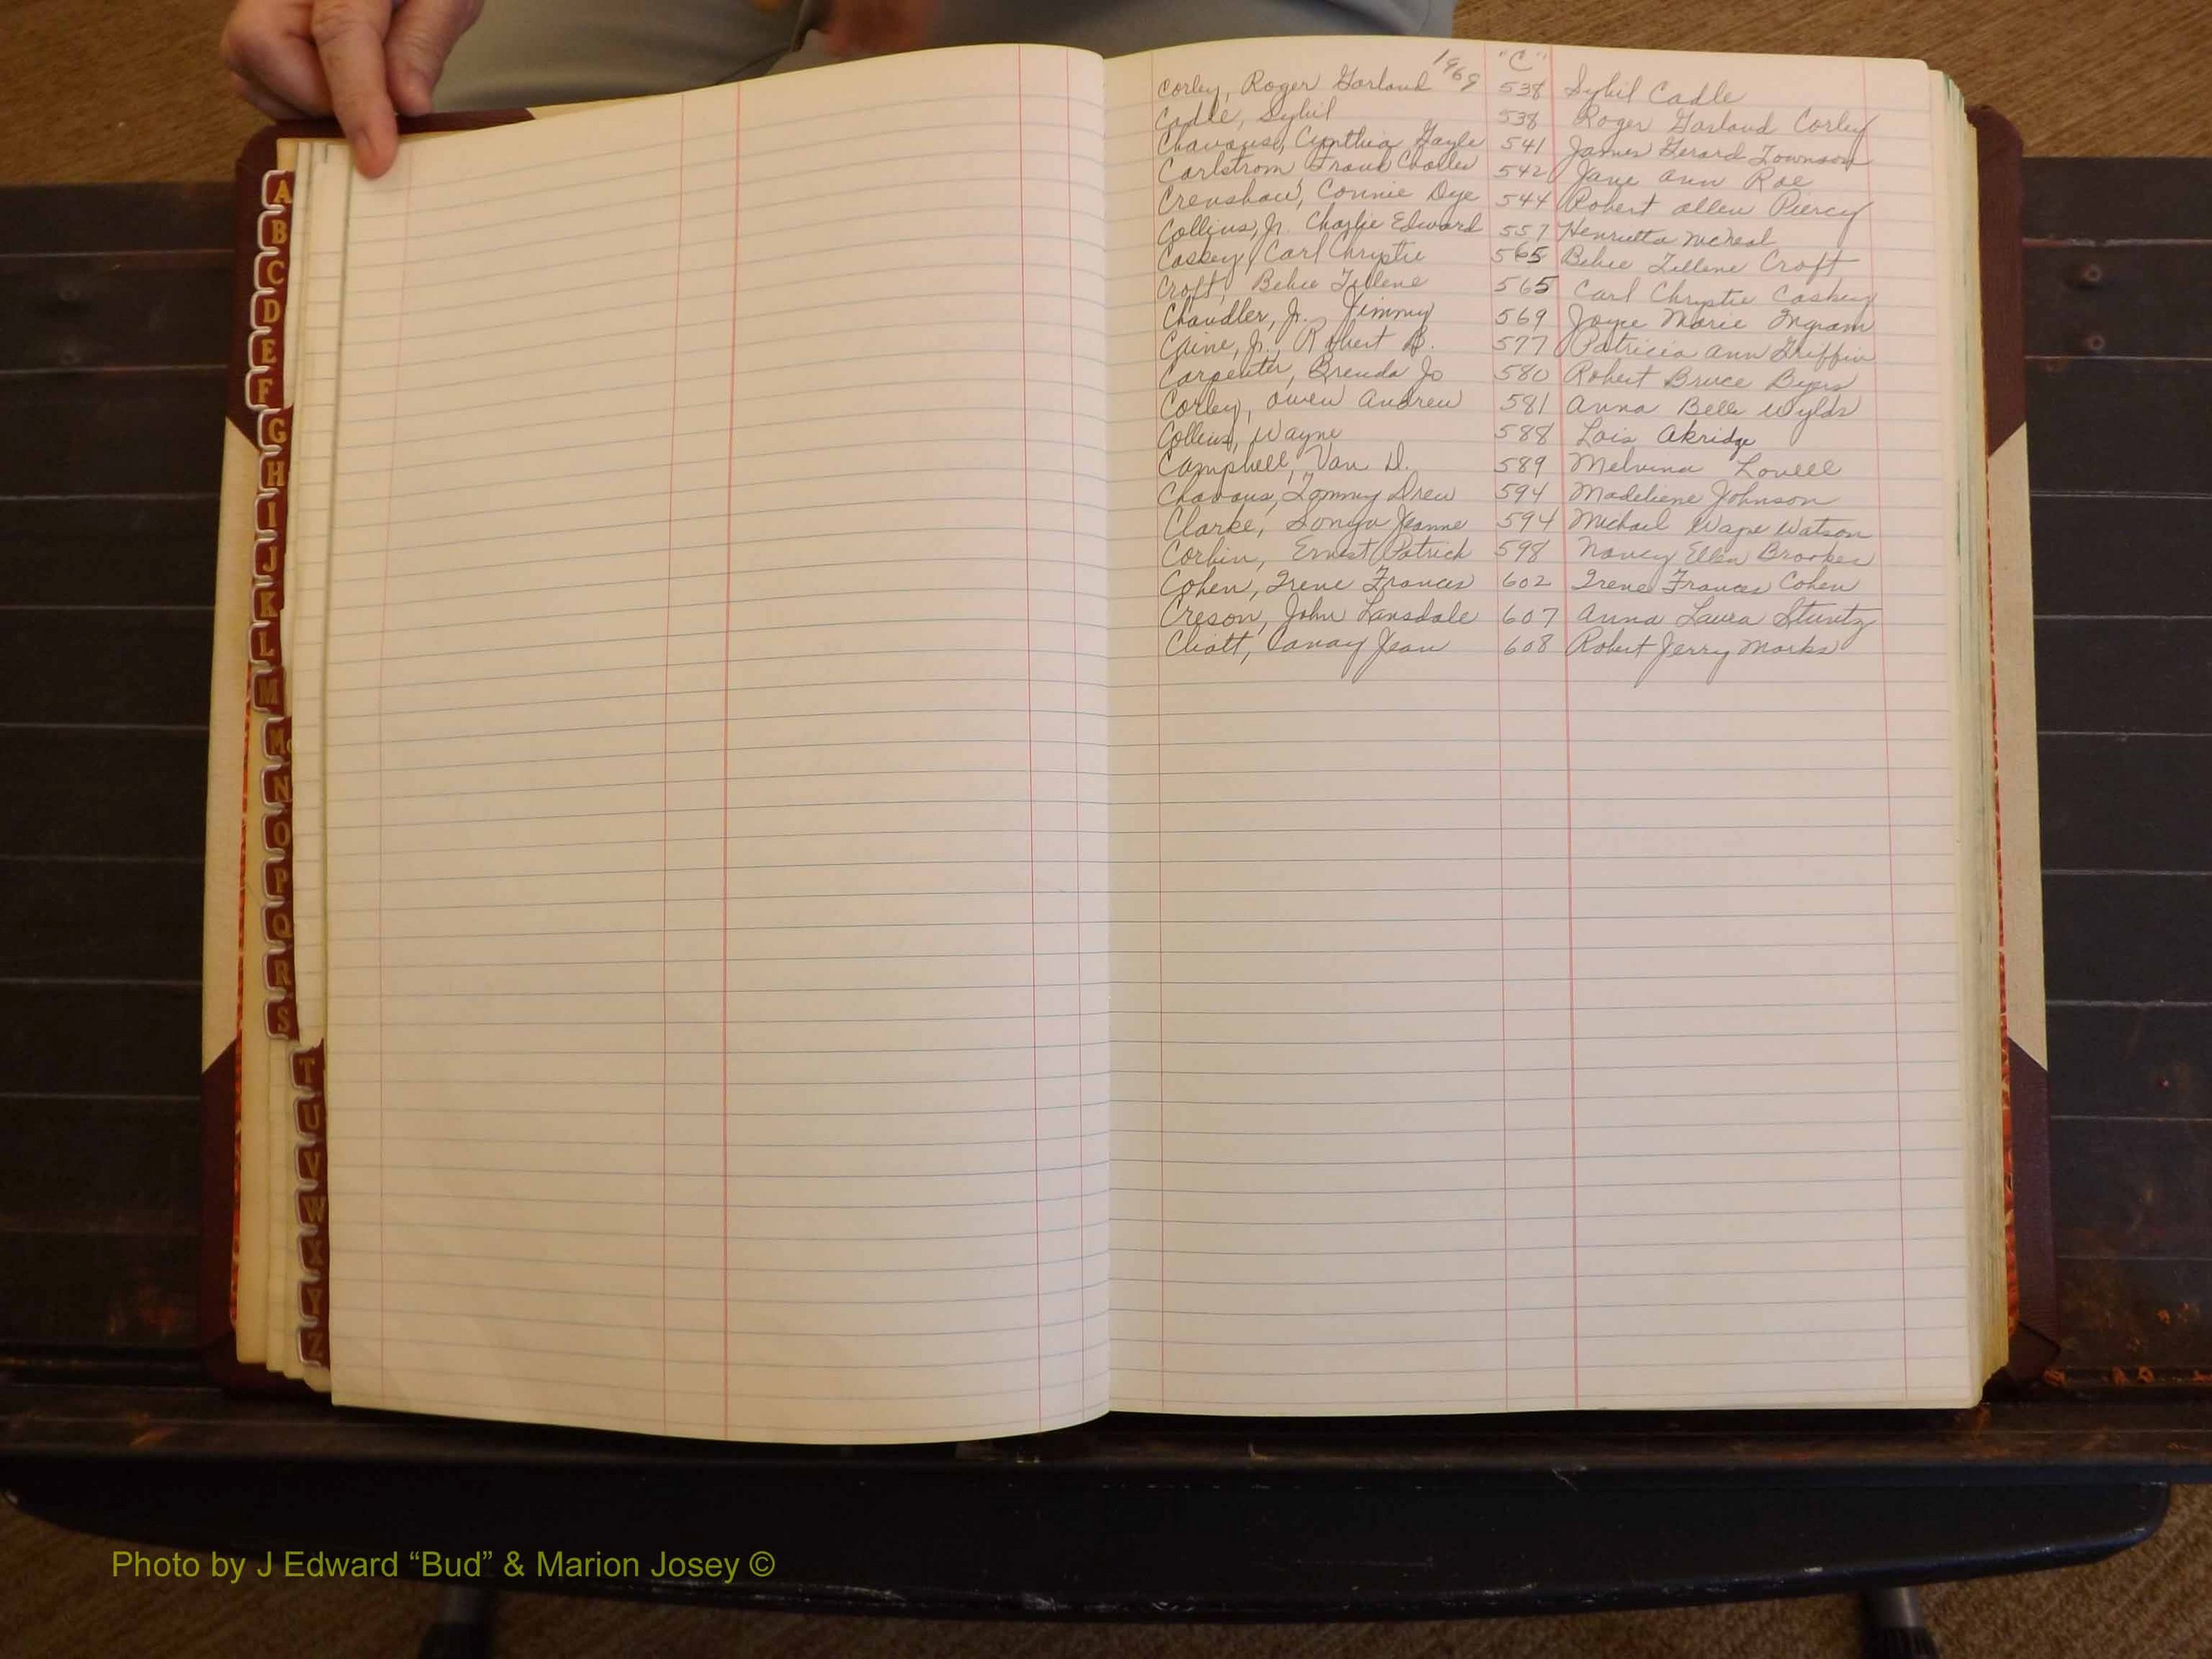 A
B
C
D
E
F
G
H
I
J
K
L
M
Mc
N
O
P
Q
R
S
T
U
V
W
X
Y
Z
1969 "C"
Corley, Roger Garland 538 Sybil Cadle
Cadle, Sybil 538 Roger Garland Corley
Cynthia Gayle 541 James Gerard Townson
Carlstrom Frank 542 Jane Ann Roe
Crenshaw, Connie Dye 544 Robert Allen Piercy
Collins, Jr. Charlie Edward 557 Henrietta McNeal
Caskey, Carl Chrystie 565 Bebie Tillene Croft
Croft, Bebie Tillene 565 Carl Chrystie Caskey
Chandler, Jr., Jimmy 569 Joyce Marie Ingram
Caine, Jr., Robert B. 577 Patricia Ann Griffin
Carpenter, Brenda Jo 580 Robert Bruce Byers
Corley, Owen Andrew 581 Anna Belle Wylds
Collins, Wayne 588 Lois Akridge
Campbell, Van D. 589 Melvina Lovell
Chavous, Tommy Drew 594 Madeliene Johnson
Clarke, Sonya Jeanne 594 Michael Watson
Corbin, Ernest Patrick 598 Nancy Ellen Brookes
Cohen, Irene Frances 602 Irene Frances Cohen
Creson, John Lansdale 607 Anna Laura Stuntz
Jean 608 Robert Jerry Marks
Photo by J Edward “Bud” & Marion Josey ©